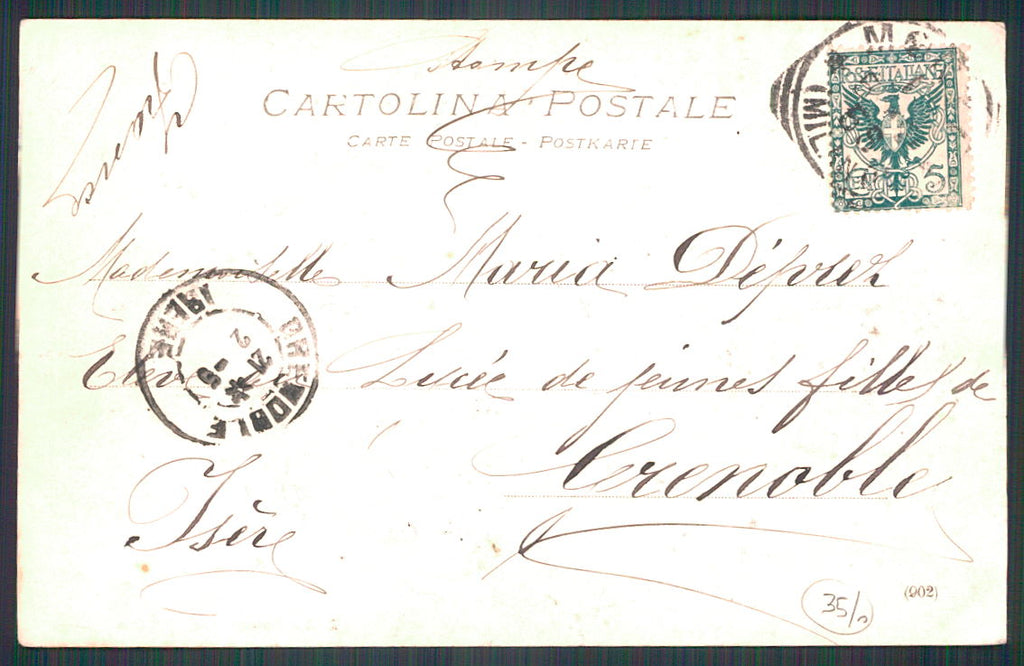 Stampe
CARTOLINA POSTALE
CARTE POSTALE - POSTKARTE
POSTE ITALIANE
CEN 5
(MIL
Mademoiselle Maria Déprez
Elève Lycée de jeunes filles de
Grenoble
Isère
GRENOBLE
ISERE
35/0
(902)